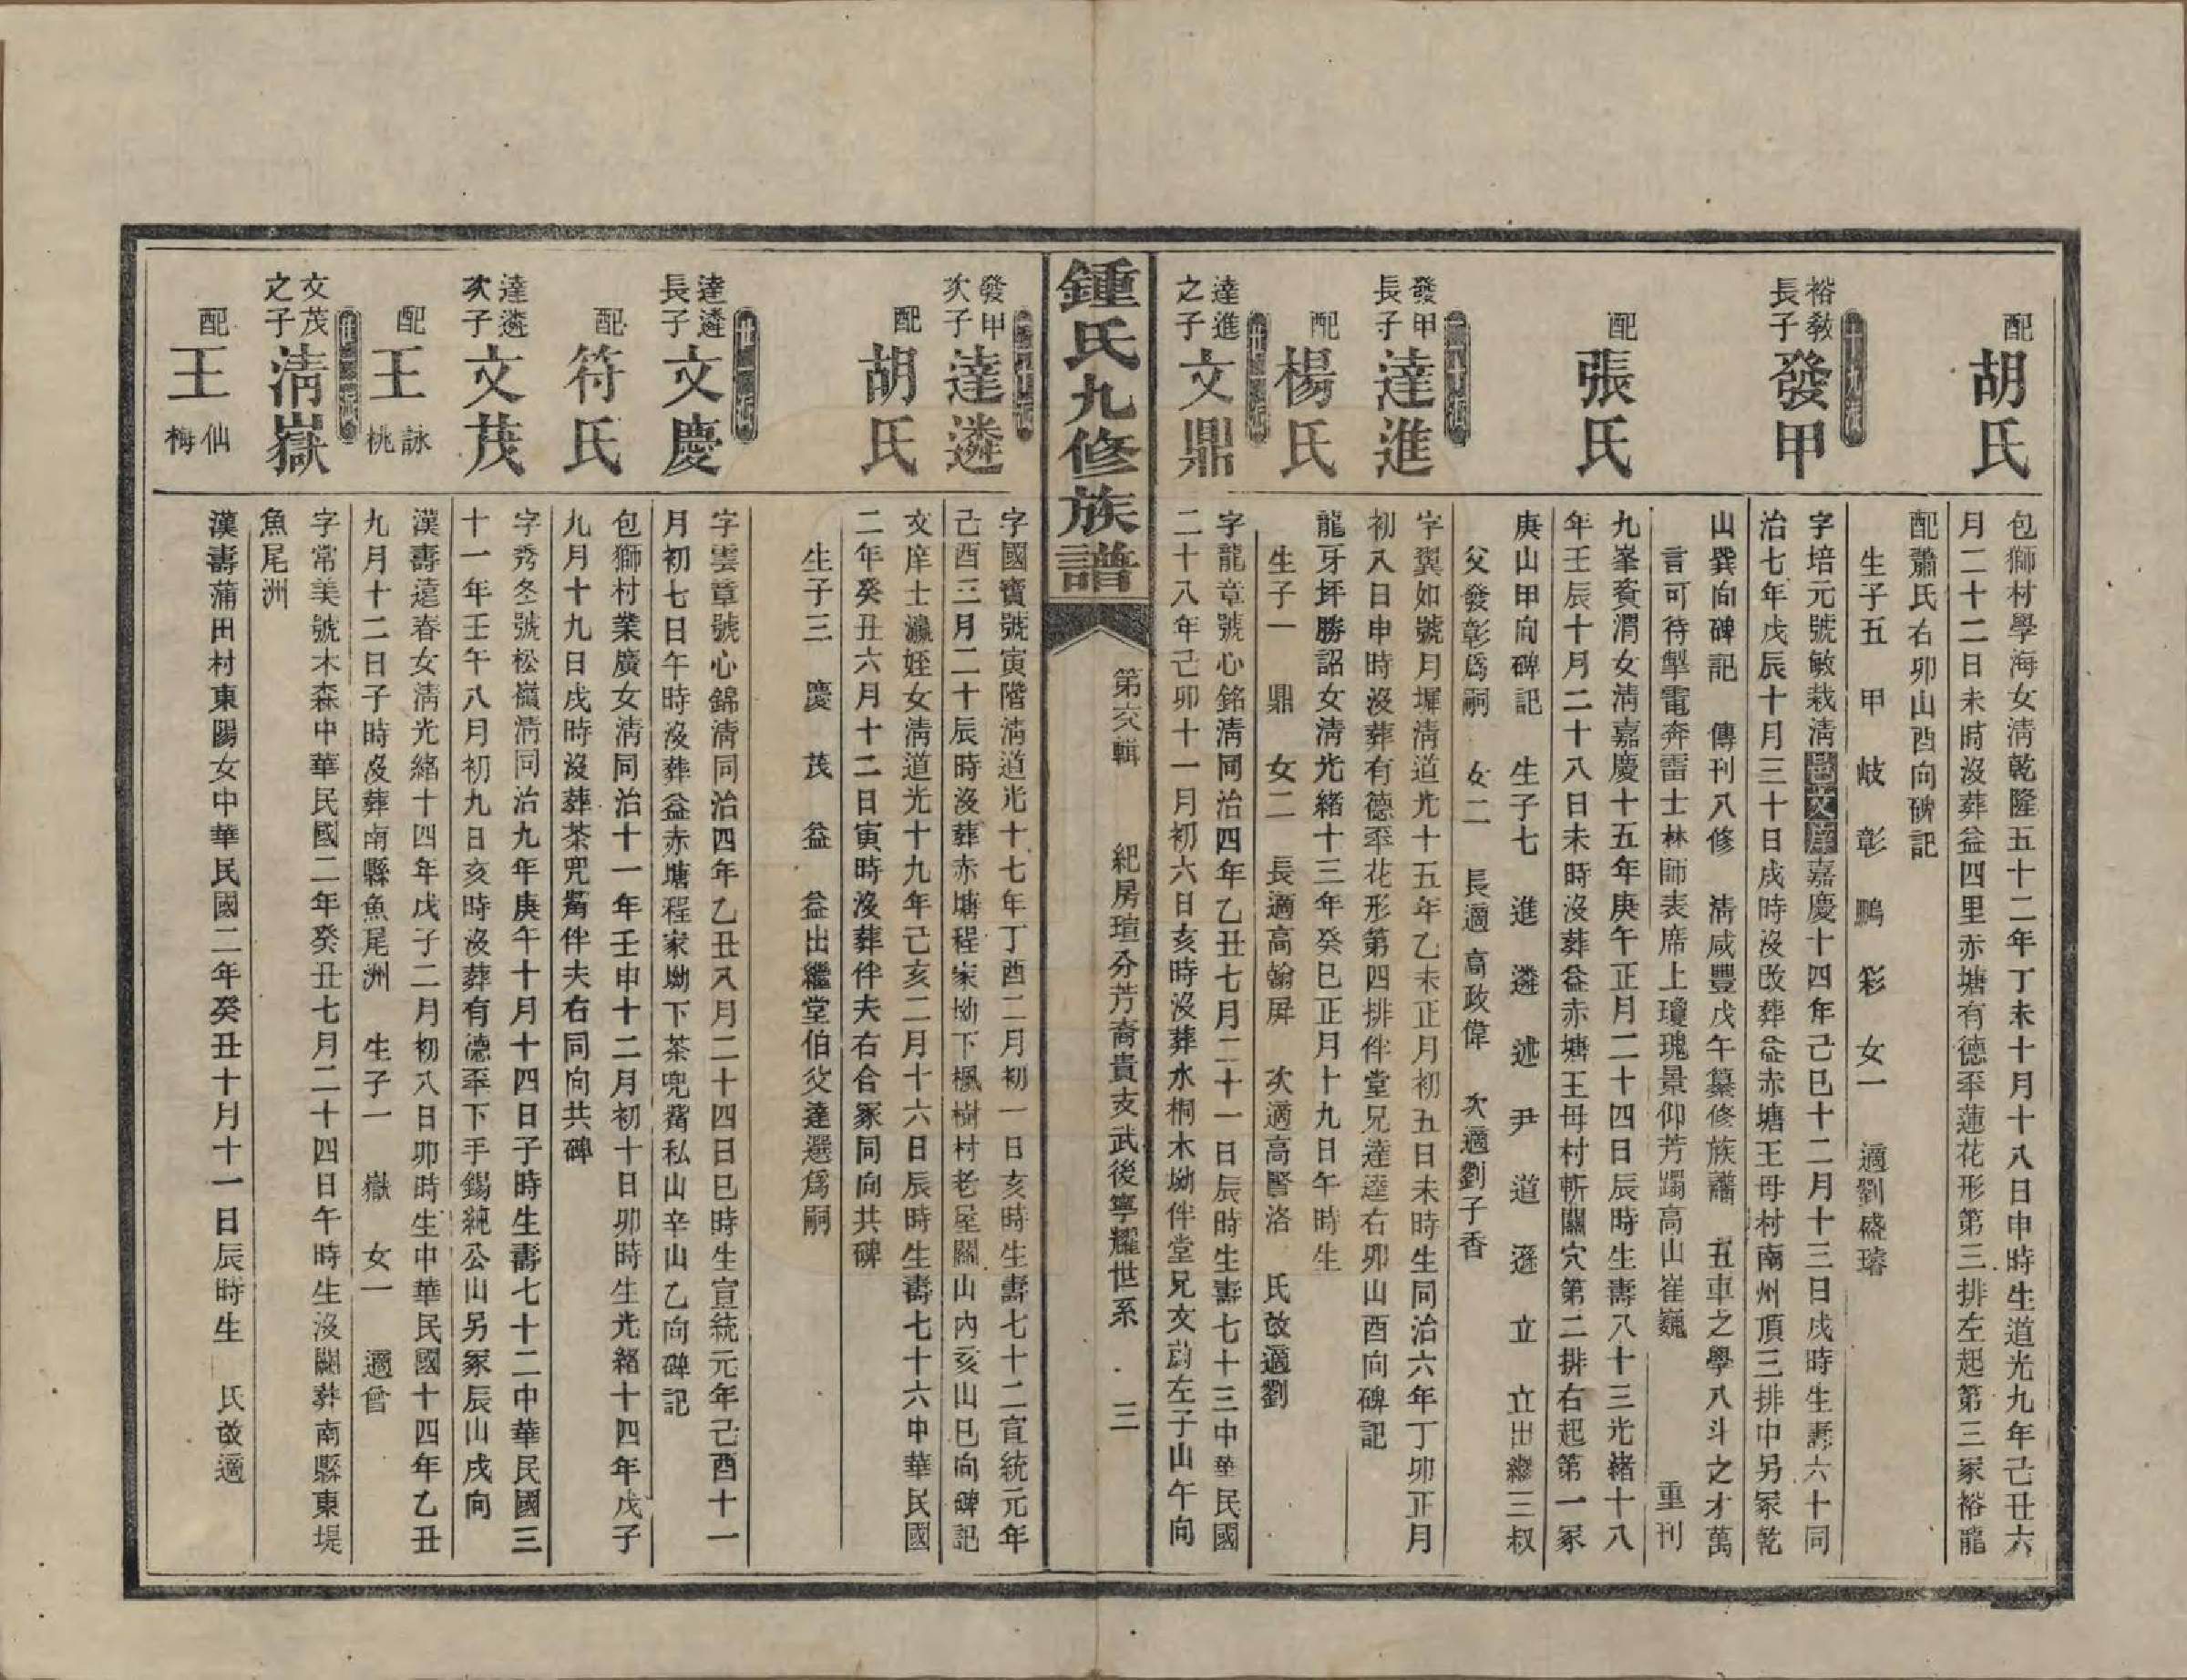 配
胡氏
包獅村學海女淸乾隆五十二年丁未十月十八日申時生道光九年己丑六
月二十二日未時沒葬益四里赤塘有德坖蓮花形第三排左起第三冢裕龍
配蕭氏右卯山酉向碑記
生子五　甲　岐　彰　鵬　彩　女一　適劉盛璿
十九派
裕敎
長子
發甲
字培元號敏栽淸邑文庠嘉慶十四年己巳十二月十三日戌時生壽六十同
治七年戊辰十月三十日戌時沒改葬益赤塘王母村南州頂三排中另冢乾
山巽向碑記　傳刊八修　淸咸豐戊午纂修族譜　五車之學八斗之才萬
言可待掣電奔雷士林師表席上瓊瑰景仰芳躅高山崔巍　重刊
配
張氏
九峯贅渭女淸嘉慶十五年庚午正月二十四日辰時生壽八十三光緖十八
年壬辰十月二十八日未時沒葬益赤塘王母村斬關穴第二排右起第一冢
庚山甲向碑記　生子七　進　遴　述　尹　道　遜　立　立出繼三叔
父發彰爲嗣　女二　長適高政偉　次適劉子香
二十派
發甲
長子
達進
字翼如號月墀淸道光十五年乙未正月初五日未時生同治六年丁卯正月
初八日申時沒葬有德坖花形第四排伴堂兄達逵右卯山酉向碑記
配
楊氏
龍牙坪勝詔女淸光緖十三年癸巳正月十九日午時生
生子一　鼎　女二　長適高翰屏　次適高賢洛　氏改適劉
達進
之子
文鼎
字龍章號心銘淸同治四年乙丑七月二十一日辰時生壽七十三中華民國
二十八年己卯十一月初六日亥時沒葬水桐木坳伴堂兄文蔚左子山午向
鍾氏九修族譜
第六輯
紀房瑄分芳裔貴支武後寧耀世系
三
發甲
次子
達遴
字國賓號寅階淸道光十七年丁酉二月初一日亥時生壽七十二宣統元年
己酉三月二十辰時沒葬赤塘程家坳下楓樹村老屋關山內亥山巳向碑記
配
胡氏
文庠士瀛姪女淸道光十九年己亥二月十六日辰時生壽七十六中華民國
二年癸丑六月十二日寅時沒葬伴夫右合冢同向共碑
生子三　慶　茂　益　益出繼堂伯父達選爲嗣
達遴
長子
文慶
字雲章號心錦淸同治四年乙丑八月二十四日巳時生宣統元年己酉十一
月初七日午時沒葬益赤塘程家坳下茶兜觜私山辛山乙向碑記
配
符氏
包獅村業廣女淸同治十一年壬申十二月初十日卯時生光緖十四年戊子
九月十九日戌時沒葬茶兜觜伴夫右同向共碑
達遴
次子
文茂
字秀冬號松嶺淸同治九年庚午十月十四日子時生壽七十二中華民國三
十一年壬午八月初九日亥時沒葬有德坖下手錫純公山另冢辰山戌向
配
王詠桃
漢壽遠春女淸光緖十四年戊子二月初八日卯時生中華民國十四年乙丑
九月十二日子時沒葬南縣魚尾洲　生子一　嶽　女一　適曾
文茂
之子
淸嶽
字常美號木森中華民國二年癸丑七月二十四日午時生沒闕葬南縣東堤
魚尾洲
配
王仙梅
漢壽蒲田村東陽女中華民國二年癸丑十月十一日辰時生　氏改適